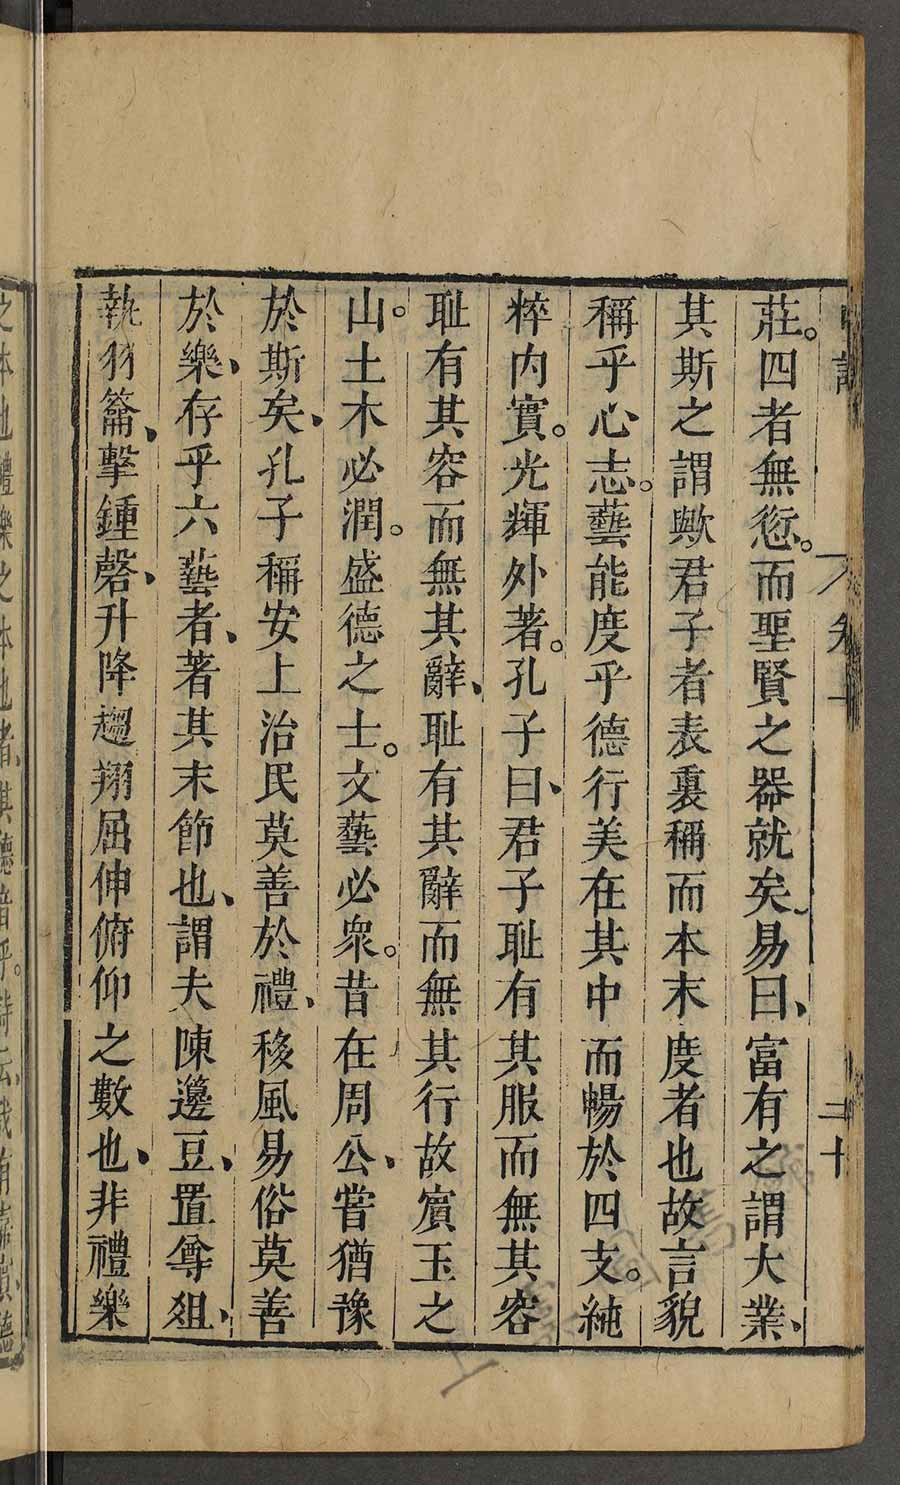 莊。四者無愆。而聖賢之器就矣易曰、富有之謂大業、
其斯之謂歟君子者表裏稱而本末度者也故言貌
稱乎心志。藝能度乎德行美在其中而暢於四支。純
粹内實。光輝外著。孔子曰、君子耻有其服而無其容
耻有其容而無其辭、耻有其辭而無其行故寶玉之
山。土木必潤。盛德之士。文藝必衆。昔在周公、嘗猶豫
於斯矣、孔子稱安上治民莫善於禮、移風易俗莫善
於樂、存乎六藝者、著其末節也、謂夫陳籩豆、置尊俎、
執羽籥、擊鍾磬、升降趨翔屈伸俯仰之數也、非禮樂
之本也禮樂之本也者、其德音乎。詩云、我有嘉賓、德